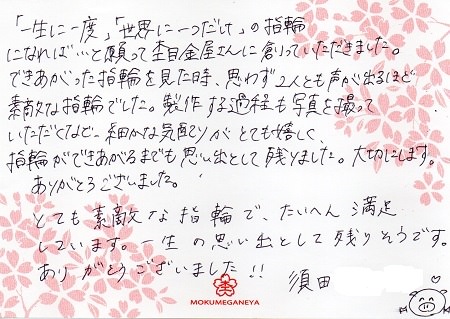 「一生に一度」「世界に一つだけ」の指輪
になれば…と願って杢目金屋さんに創っていただきました。
できあがった指輪を見た時、思わず2人とも声が出るほど
素敵な指輪でした。製作する過程も写真を撮って
いただくなど、細かな気配りがとても嬉しく、
指輪ができあがるまでも思い出として残りました。大切にします。
ありがとうございました。
とても素敵な指輪で、たいへん満足
しています。一生の思い出として残りそうです。
ありがとうございました!!
須田
MOKUMEGANEYA